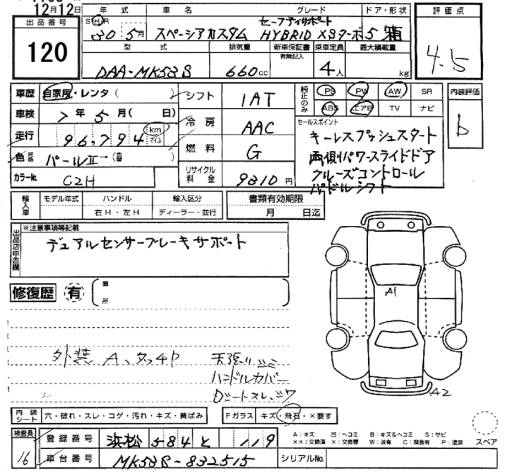 12月12日
出品番号 120
年式 車名 グレード ドア・形状 評価点
30 5月 スペーシアカスタム セーフティサポート HYBRID XSターボ 5 箱
4.5
型式 排気量 新車保証書 有無記入 乗車定員 最大積載量
DAA-MK53S 660cc 4人 kg
車歴 自家用・レンタ
シフト 1AT
純正のみ PS PW AW SR
ABS エアB TV ナビ
内装評価 b
車検 7年5月(日)
冷房 AAC
セールスポイント
キーレスプッシュスタート
両側パワースライドドア
クルーズコントロール
パドルシフト
走行 96,794 km マイル
燃料 G
色 パールII→(替)
カラーNo. C2H
リサイクル料金 9810円
輸入車 モデル年式 ハンドル 輸入区分 書類有効期限
年 右H・左H ディーラー・並行 月 日迄
出品店申告欄 ※注意事項等記載
デュアルセンサーブレーキサポート
修復歴 有 箇所
A1
外装 A、タッチP
天張りシミ
ハンドルカバー
A2
内装シート 穴・破れ・スレ・コゲ・汚れ・キズ・黄ばみ
Fガラス キズ・飛石・×要す
検査員 16
登録番号 浜松 584 と 119
A:キズ U:ヘコミ B:キズ&ヘコミ S:サビ
スペア
車台番号 MK53S-832515
シリアルNo.